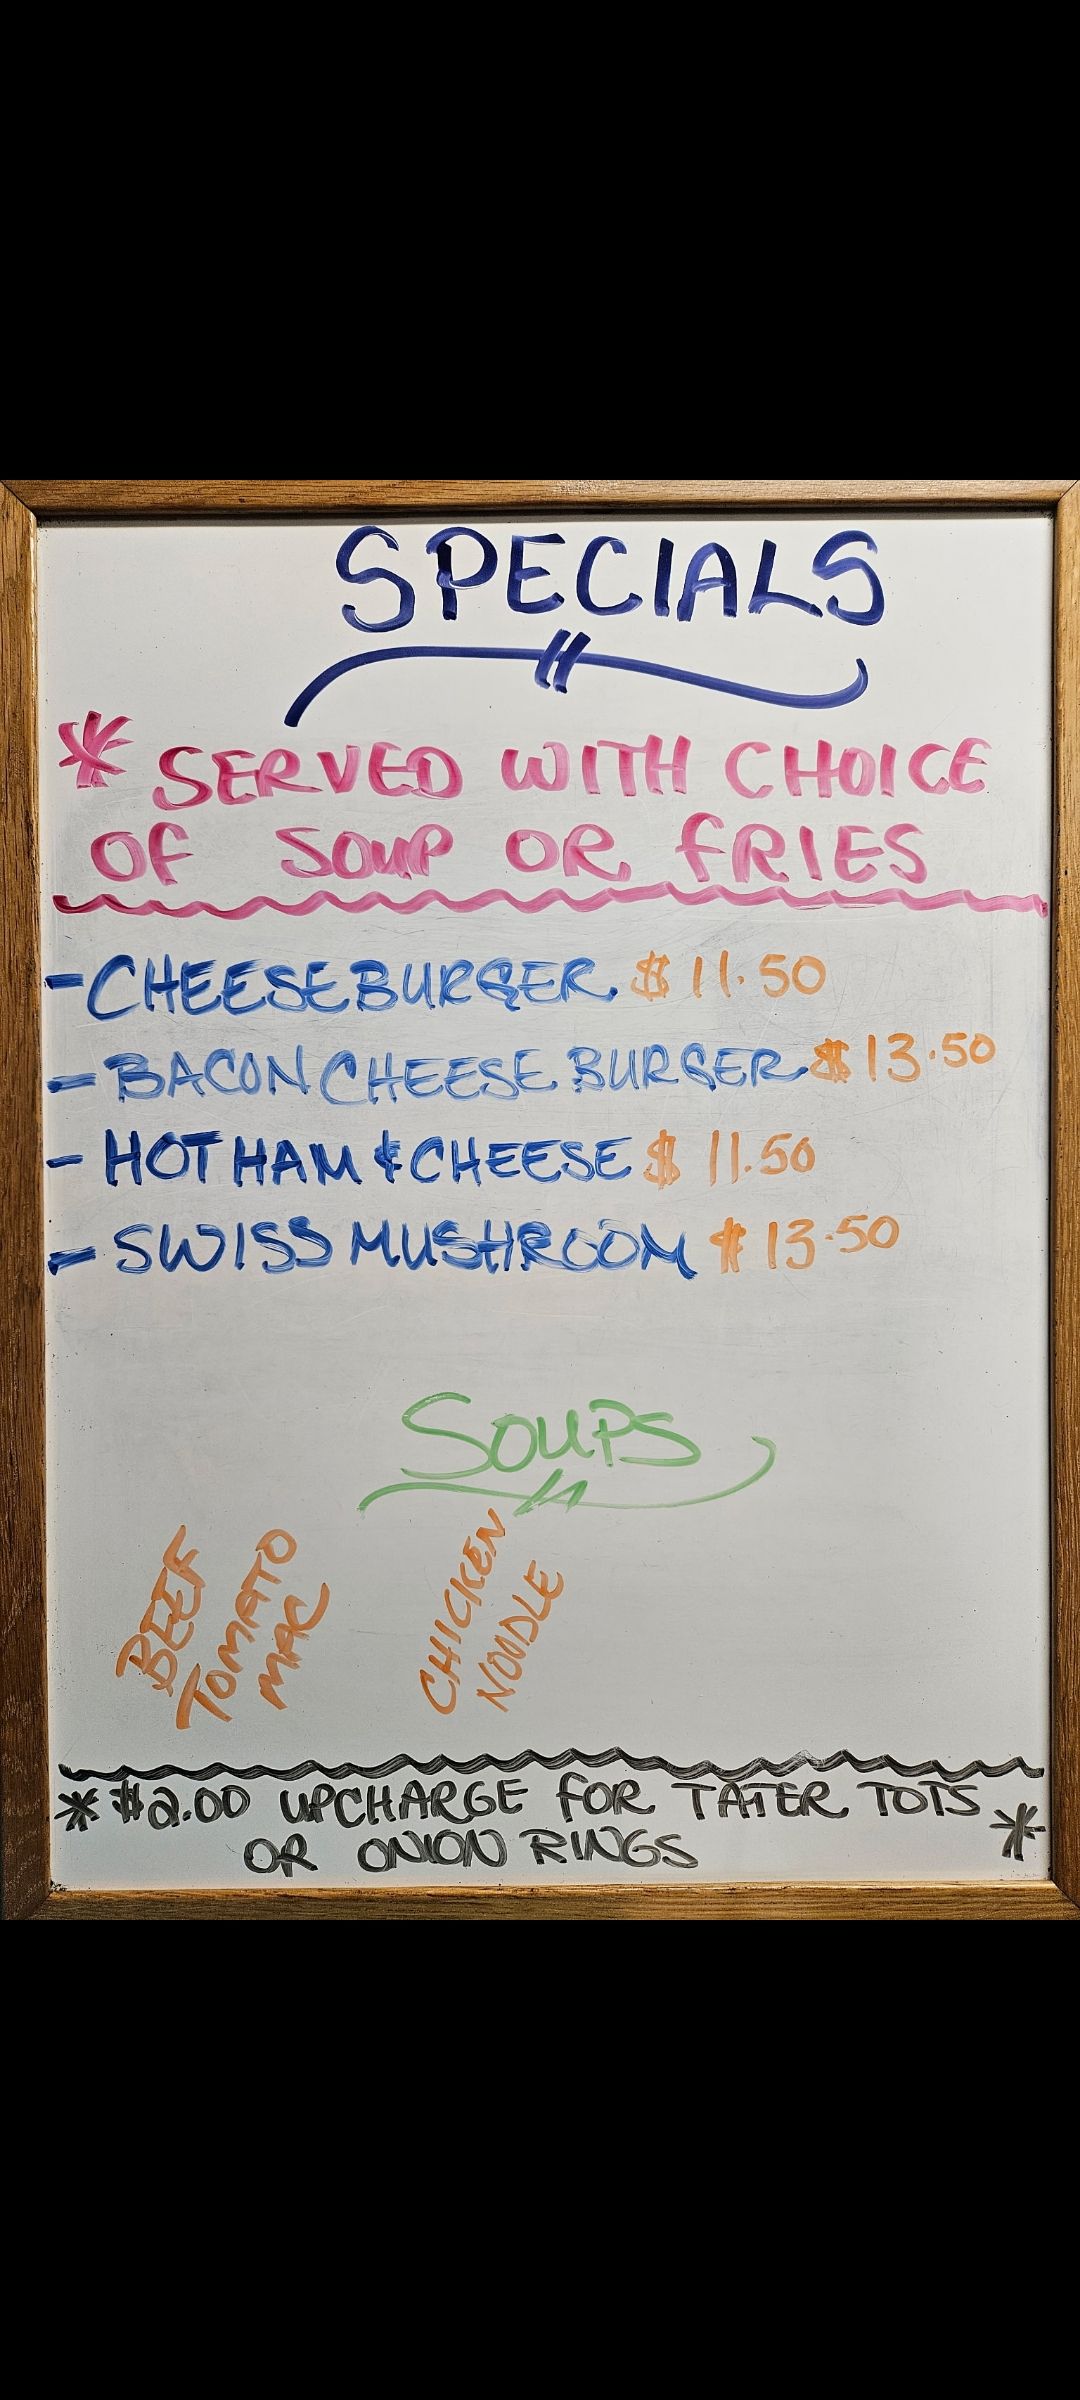 SPECIALS
* SERVED WITH CHOICE
OF SOUP OR FRIES
- CHEESEBURGER $11.50
- BACON CHEESE BURGER $13.50
- HOT HAM & CHEESE $11.50
- SWISS MUSHROOM $13.50
SOUPS
BEEF
TOMATO
MAC
CHICKEN
NOODLE
* $2.00 UPCHARGE FOR TATER TOTS
OR ONION RINGS *